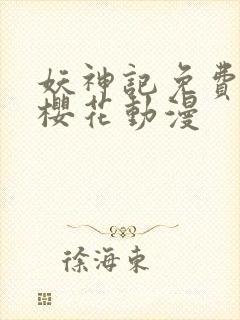 妖神記免費
櫻花動漫
徐海東